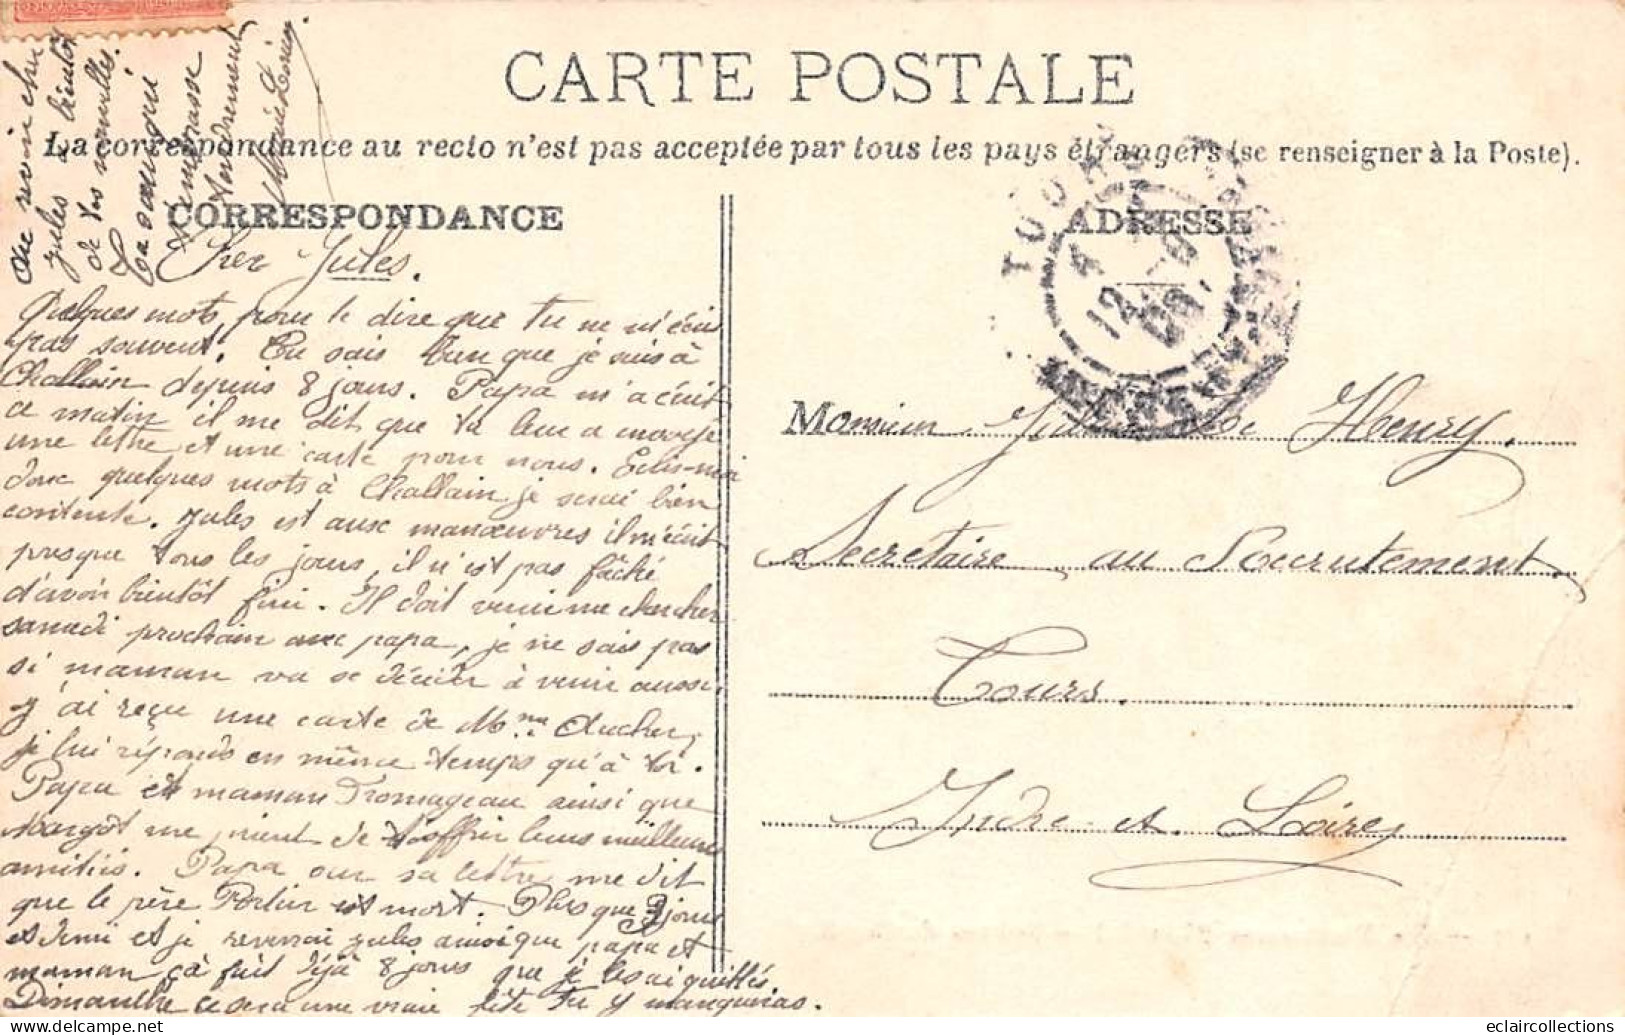 CARTE POSTALE
La correspondance au recto n'est pas acceptée par tous les pays étrangers (se renseigner à la Poste).
CORRESPONDANCE
ADRESSE
Cher Jules.
Quelques mots, pour te dire que tu ne m'écris
pas souvent. Tu sais bien que je suis à
Challain depuis 8 jours. Papa m'a écrit
ce matin il me dit que tu leur a envoyé
une lettre et une carte pour nous. Ecris-moi
donc quelques mots à Challain je serai bien
contente. Jules est aux manœuvres il m'écrit
presque tous les jours, il n'est pas fâché
d'avoir bientôt fini. Il doit venir me chercher
samedi prochain avec papa, je ne sais pas
si maman va se décider à venir aussi,
j'ai reçu une carte de Mme Aucher,
je lui réponds en même temps qu'à toi.
Papa et maman Fromageau ainsi que
Margot me prient de t'offrir leurs meilleures
amitiés. Papa sur sa lettre me dit
que le père est mort. Plus que 3 jours
et demi et je reverrai Jules ainsi que papa et
maman, çà fait déjà 8 jours que je les ai quittés.
Dimanche ce sera une vraie fête tu y manqueras.
mon cher
Jules à bientôt
de tes nouvelles.
Ta qui
t'embrasse
tendrement
Monsieur Jules Henry.
Secrétaire au Recrutement
Tours.
Indre et Loire
TOURS
12
eclaircollections